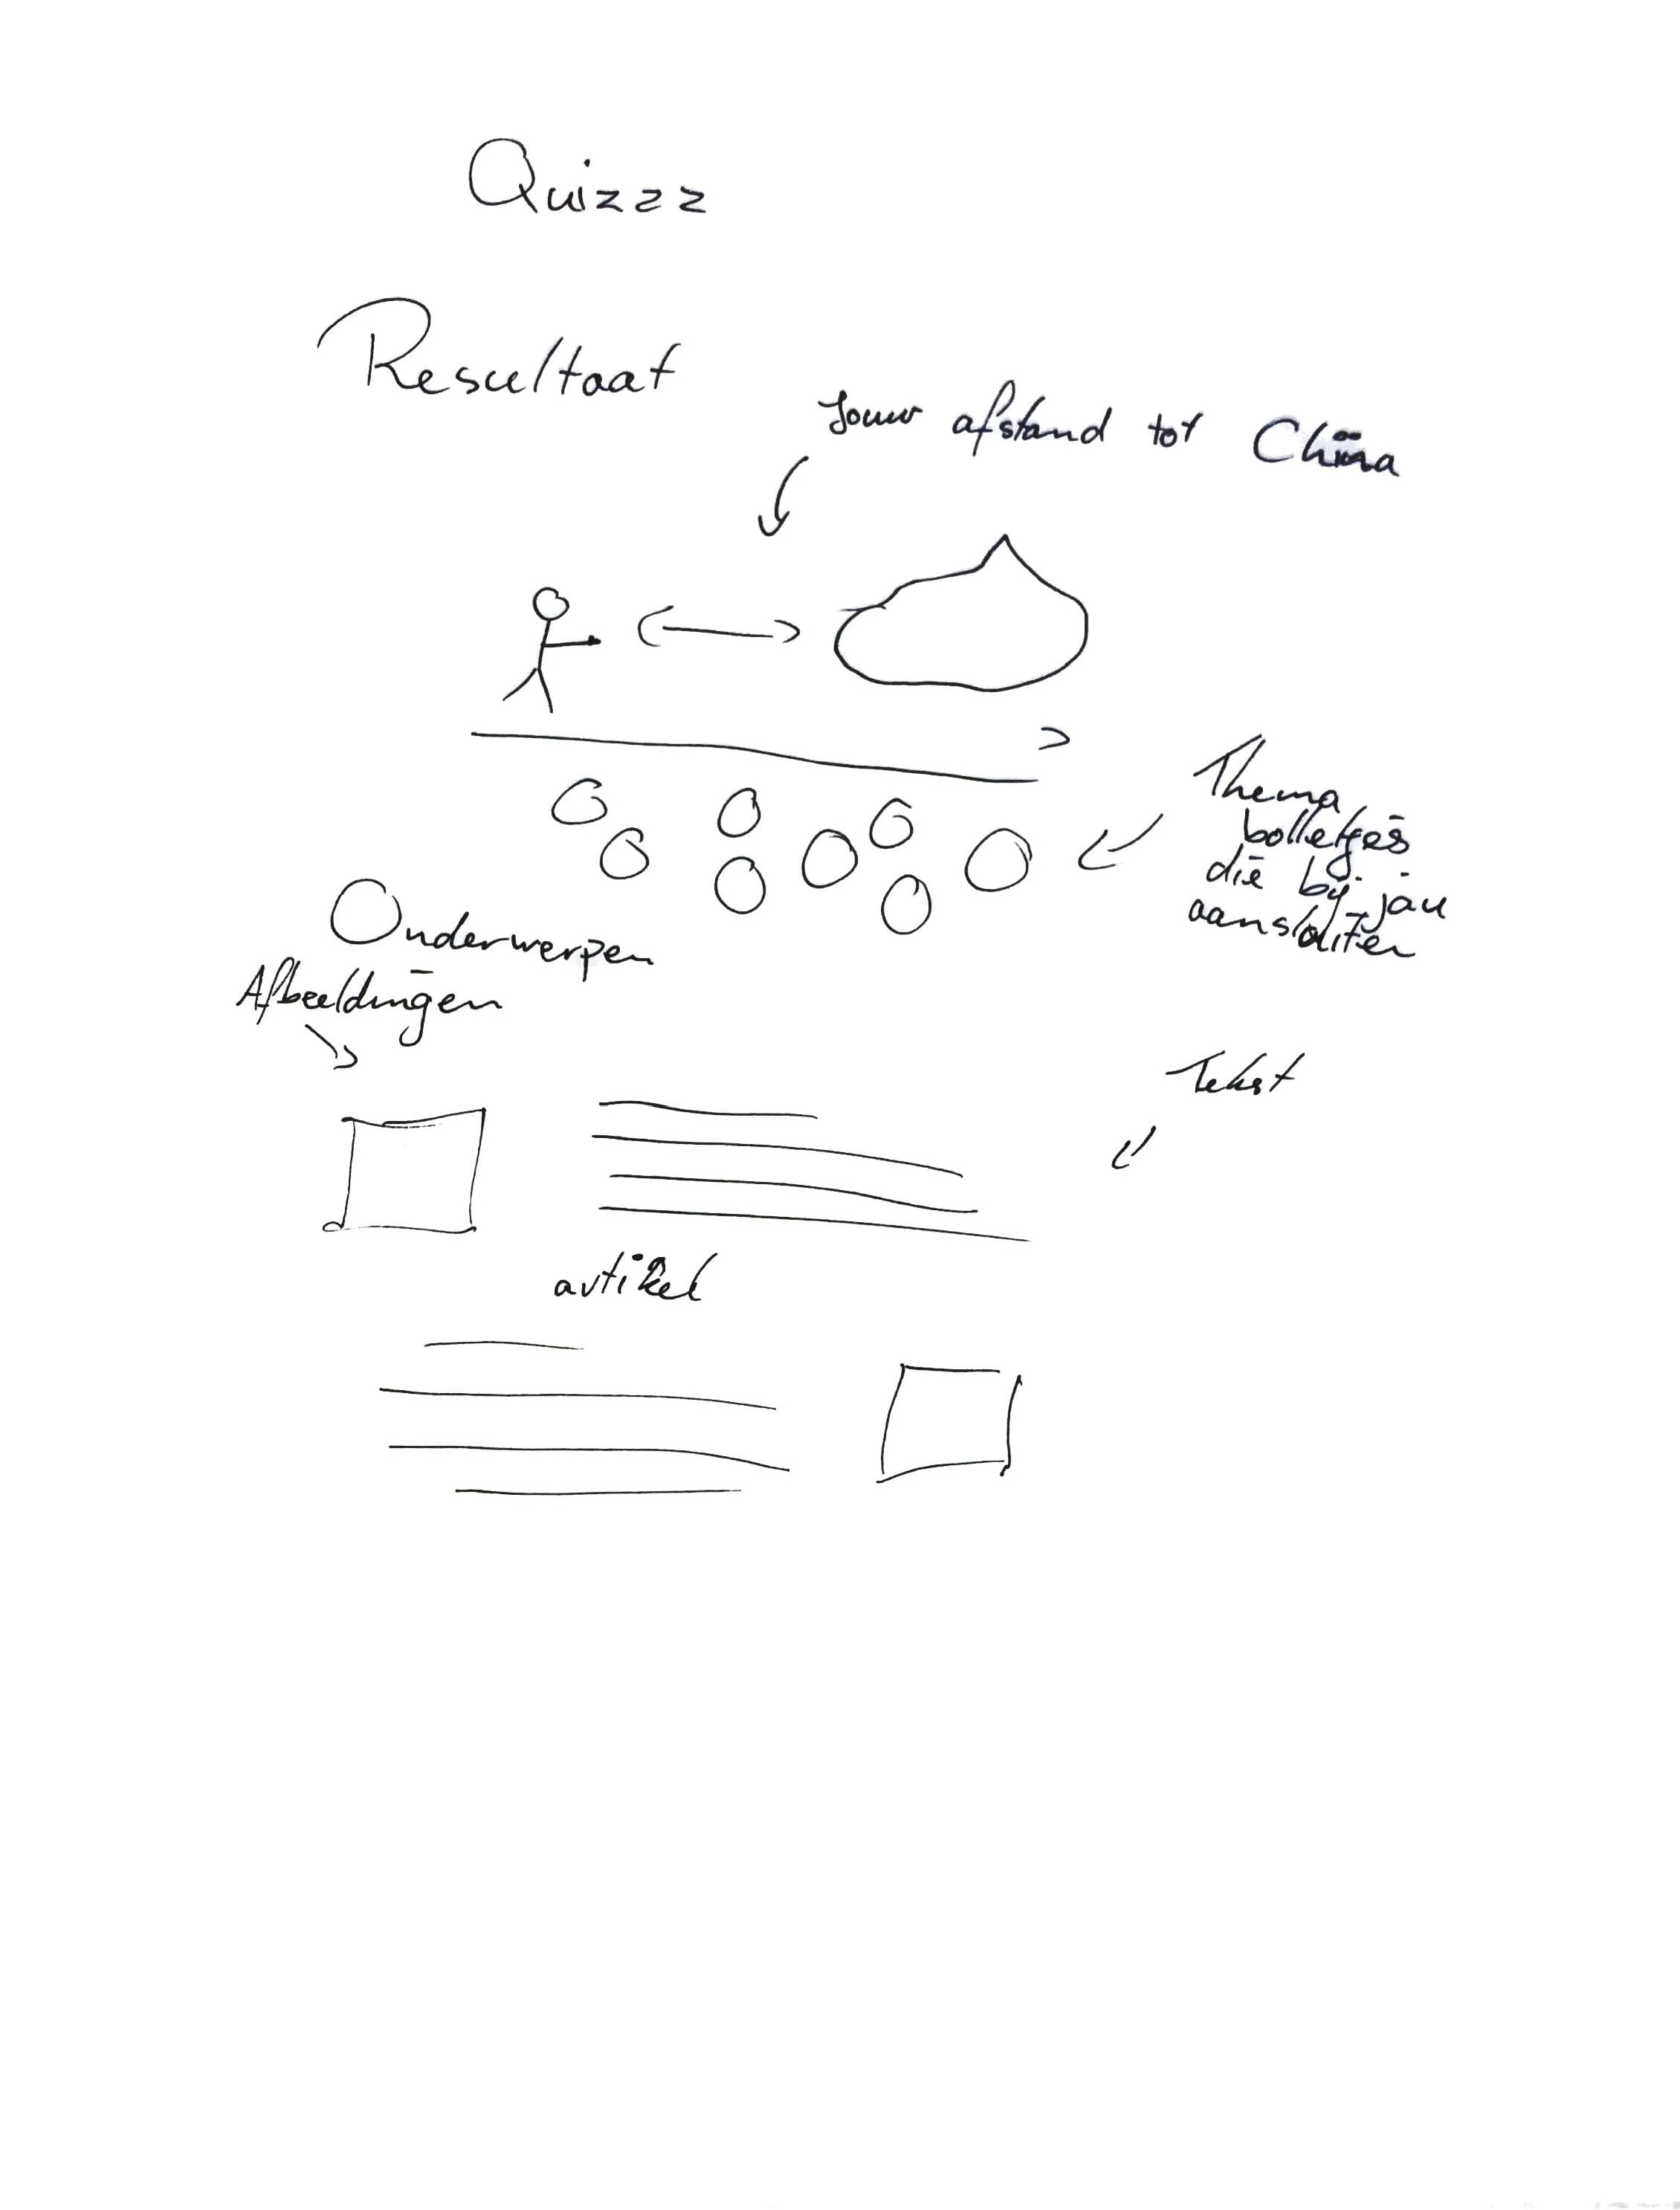 Quizzz
Resultaat
Jouw afstand tot China
Thema
bolletjes
die bij jou
aansluiten
Onderwerpen
Afbeeldingen
Tekst
artikel